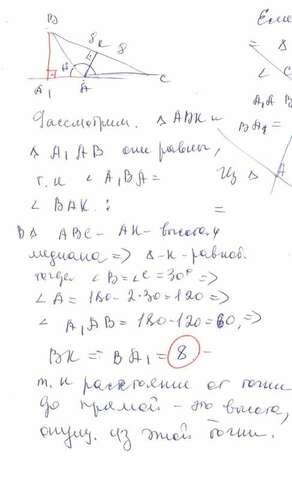 B
8 K 8
A₁ A C
Рассмотрим. △ ABK и
△ A₁AB они равны,
т.к ∠ A₁BA =
∠ BAK :
В △ ABC - AK - высота и
медиана => △ - к - равноб.
тогда ∠ B = ∠ C = 30° =>
∠ A = 180 - 2·30 = 120 =>
∠ A₁AB = 180 - 120 = 60, =>
BK = BA₁ = 8, -
т.к расстояние от точки
до прямой - это высота,
опущ. из этой точки.
Если
= 8
∠ C
A₁A B
BA₁ =
Из △
A
=